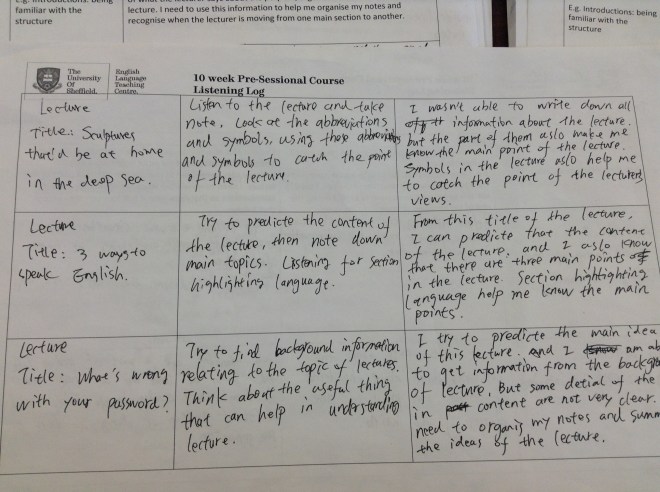 E.g. Introductions: being
familiar with the
structure
lecture. I need to use this information to help me organise my notes and
recognise when the lecturer is moving from one main section to another.
E.g. Introductions: being
familiar with the
structure
The
University
Of
Sheffield.
English
Language
Teaching
Centre.
10 week Pre-Sessional Course
Listening Log
Lecture
Title: Sculptures
that'd be at home
in the deep sea.
Listen to the lecture and take
note. Look at the abbreviations
and symbols, using those abbreviations
and symbols to catch the point
of the lecture.
I wasn't able to write down all
information about the lecture.
but the part of them aslo make me
know the main point of the lecture.
Symbols in the lecture aslo help me
to catch the point of the lecturers
views.
Lecture
Title: 3 ways to
speak English.
Try to predicte the content of
the lecture, then note down
main topics. Listening for section
highlighting language.
From this title of the lecture,
I can predicte that the content
of the lecture, and I aslo know
that there are three main points of
in the lecture. Section highlighting
language help me know the main
points.
Lecture
Title: What's wrong
with your password?
Try to find background information
relating to the topic of lectures.
Think about the useful thing
that can help in understanding
lecture.
I try to predicte the main idea
of this lecture. and I am
to get information from the
of lecture, but some detial of the
in content are not very clear.
need to organis my notes and
the ideas of the lecture.